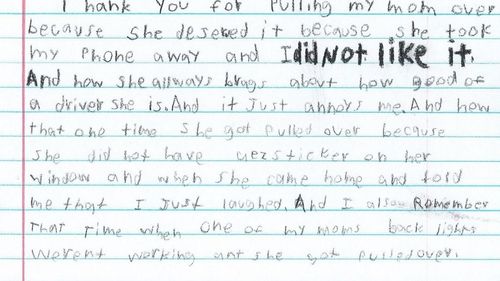 I thank you for pulling my mom over
because she desered it because she took
my phone away and I did not like it.
And how she allways brags about how good of
a driver she is. And it Just annoys me. And how
that one time she got pulled over because
she did not have uersticker on her
window and when she came home and told
me that I Just laughed. And I also Romember
That Time when one of my moms back lights
werent working ant she got pulled over.